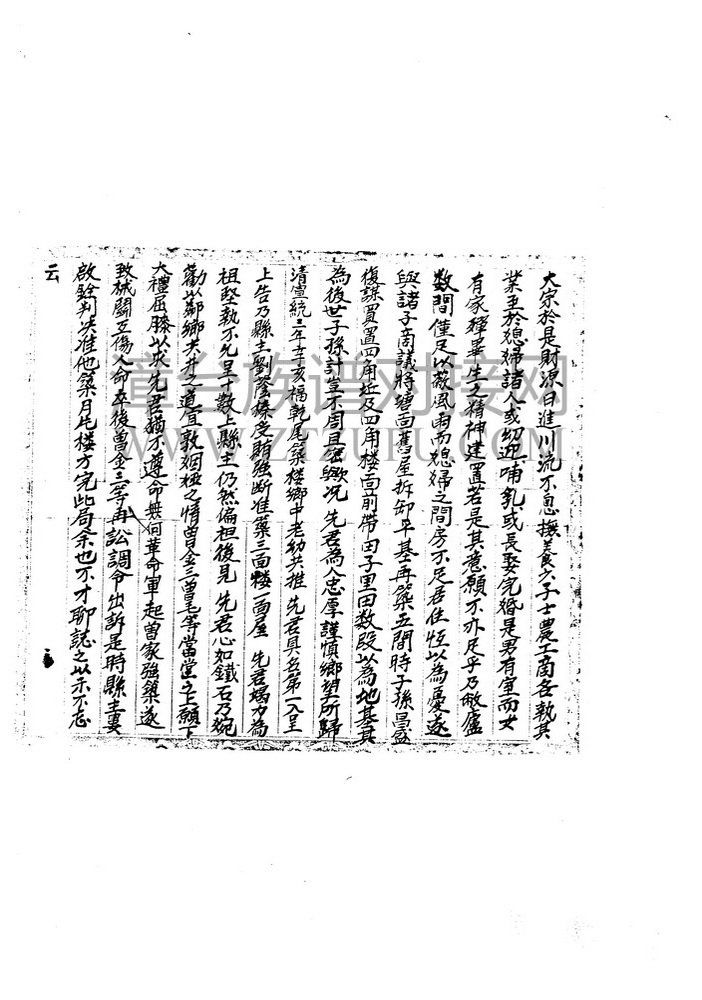 大宗於是財源日進川流不息撫養六子士農工商各執其
業至於媳婦諸人或幼迎哺乳或長娶完婚是男有室而女
有家殫畢生之精神建置若是其意願不亦足乎乃敝廬
数間僅足以蔽風雨而媳婦之間房不足居住恆以為憂遂
與諸子商議將塘面舊屋拆卸平基再築五間時子孫昌盛
復謀置置四角近及四角楼面前帶田子里田数段以為地基其
為後世子孫計豈不周且密歟况先君為人忠厚謹慎鄉望所歸
清宣統三年辛亥福乾尾築楼鄉中老幼共推先君具名第一人呈
上告乃縣主劉蔭榛受賄强断准築三面楼一面屋先君竭力為
祖堅執不允呈十数上縣主仍然偏袒後見先君心如鐵石乃婉
勸以鄰鄉共井之道宜敦姻婭之情曾金三曾毛等當堂之上願下
大禮屈膝以求先君猶不遵命無何革命軍起曾家强築遂
致械鬪互傷人命卒後曾金三等再訟調令出訴是時縣主婁
啟銓判决准他築月圪楼方完此局余也不才聊誌之以示不忘
云
章台族谱对接网
WWW.ZTZUPU.COM